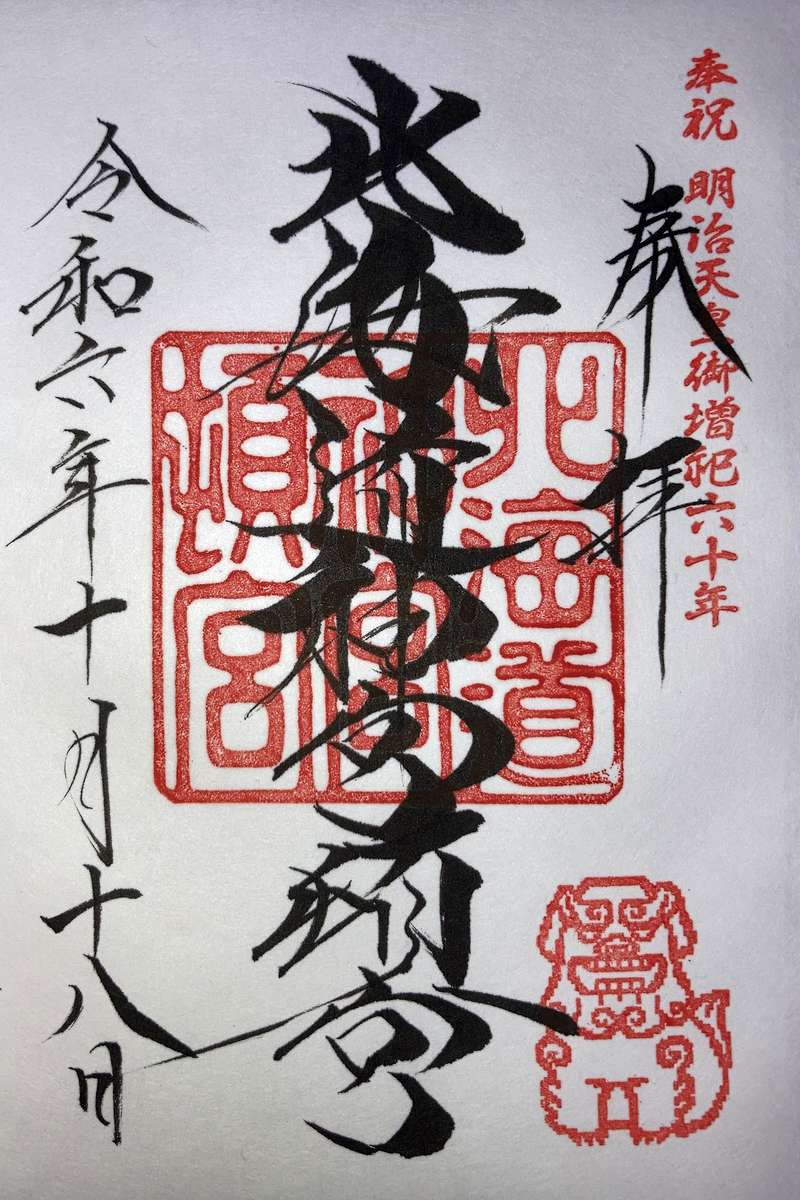 奉祝 明治天皇御増祀六十年
奉拝
北海道神宮頓宮
北海道
神宮
頓宮
令和六年十月十八日